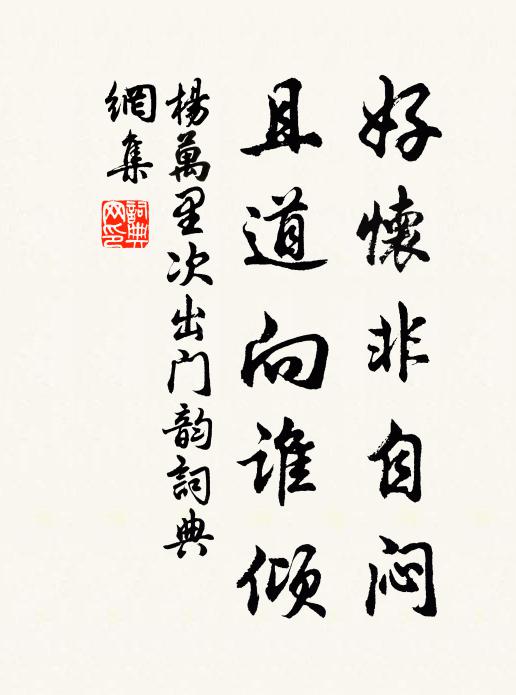 好懷非自闷
且道向谁倾
楊萬里次出门韵詞典
網集
詞典网印